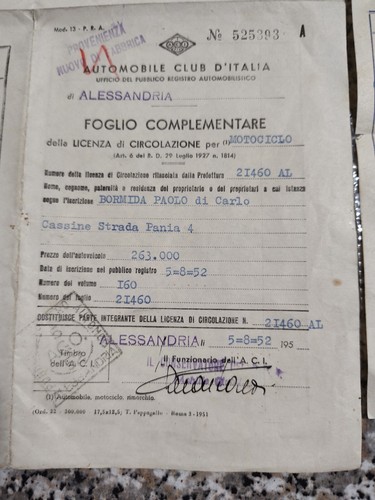 Mod. 13 - P. R. A.
№ 525393 A
PROVENIENZA
NUOVO DI FABBRICA
AUTOMOBILE CLUB D'ITALIA
UFFICIO DEL PUBBLICO REGISTRO AUTOMOBILISTICO
di ALESSANDRIA
FOGLIO COMPLEMENTARE
della LICENZA di CIRCOLAZIONE per (1) MOTOCICLO
(Art. 6 del R. D. 29 Luglio 1927 n. 1814)
Numero della licenza di Circolazione rilasciata dalla Prefettura 21460 AL
Nome, cognome, paternità e residenza del proprietario o dei proprietari a cui istanza
segue l'iscrizione BORMIDA PAOLO di Carlo
Cassine Strada Pania 4
Prezzo dell'autoveicolo 263.000
Data di iscrizione nel pubblico registro 5=8=52
Numero del volume I60
Numero del foglio 2I460
COSTITUISCE PARTE INTEGRANTE DELLA LICENZA DI CIRCOLAZIONE N. 2I460 AL
ALESSANDRIA li 5=8=52 195
Timbro
dell'A. C. I.
Il Funzionario dell'A. C. I.
IL CONSERVATORE
(1) Automobile, motociclo, rimorchio.
(Ord. 82 - 200.000 - 17,5x12,5; T. Pappagallo - Roma 1-1951